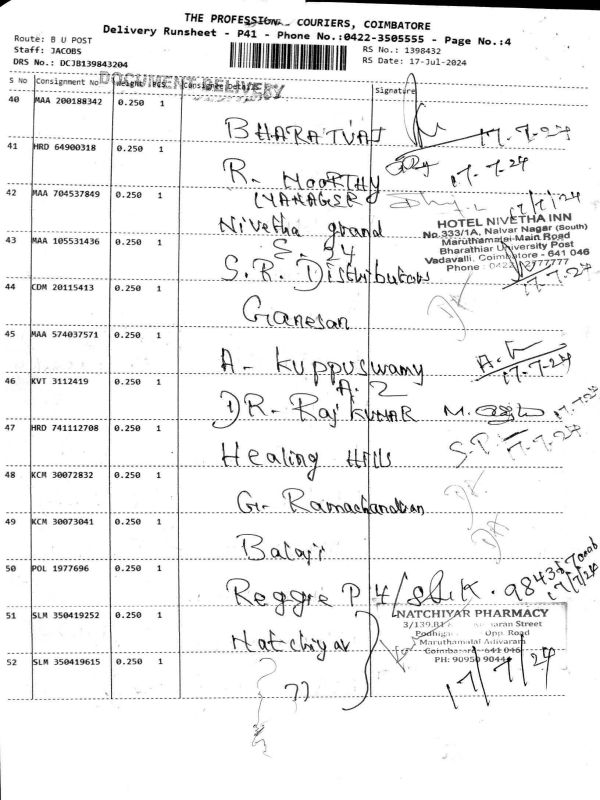 THE PROFESSIONAL COURIERS, COIMBATORE
Delivery Runsheet - P41 - Phone No.:0422-3505555 - Page No.:4
Route: B U POST
Staff: JACOBS
DRS No.: DCJB139843204
RS No.: 1398432
RS Date: 17-Jul-2024
DOCUMENT DELIVERY
S No Consignment No Weight PCS Consignee Details Signature
40 MAA 200188342 0.250 1
BHARATVAJ 17-7-24
41 HRD 64900318 0.250 1
R. MOORTHY 17-7-24
42 MAA 704537849 0.250 1
MANAGER 17/7/24
Nivetha grand
HOTEL NIVETHA INN
No.333/1A, Nalvar Nagar (South)
Maruthamalai Main Road
Bharathiar University Post
Vadavalli, Coimbatore - 641 046
Phone : 0422 2777777
43 MAA 105531436 0.250 1
E. 24
S.R. Distributors 17-7-24
44 CDM 20115413 0.250 1
Ganesan
45 MAA 574037571 0.250 1
A. Kuppuswamy 17-7-24
46 KVT 3112419 0.250 1
A. 2
DR. Raj KUMAR M. 17-7-24
47 HRD 741112708 0.250 1
Healing Hills S.P. 17-7-24
48 KCM 30072832 0.250 1
G. Ramachandran
49 KCM 30073041 0.250 1
Balaji
50 POL 1977696 0.250 1
Reggie P 4/ 17/7/24
51 SLM 350419252 0.250 1
Natchiyar
NATCHIYAR PHARMACY
3/139.B1 Street
Opp. Road
Maruthamalai Adivaram
Coimbatore 641 046
PH: 9095 90444
52 SLM 350419615 0.250 1
17/7/24